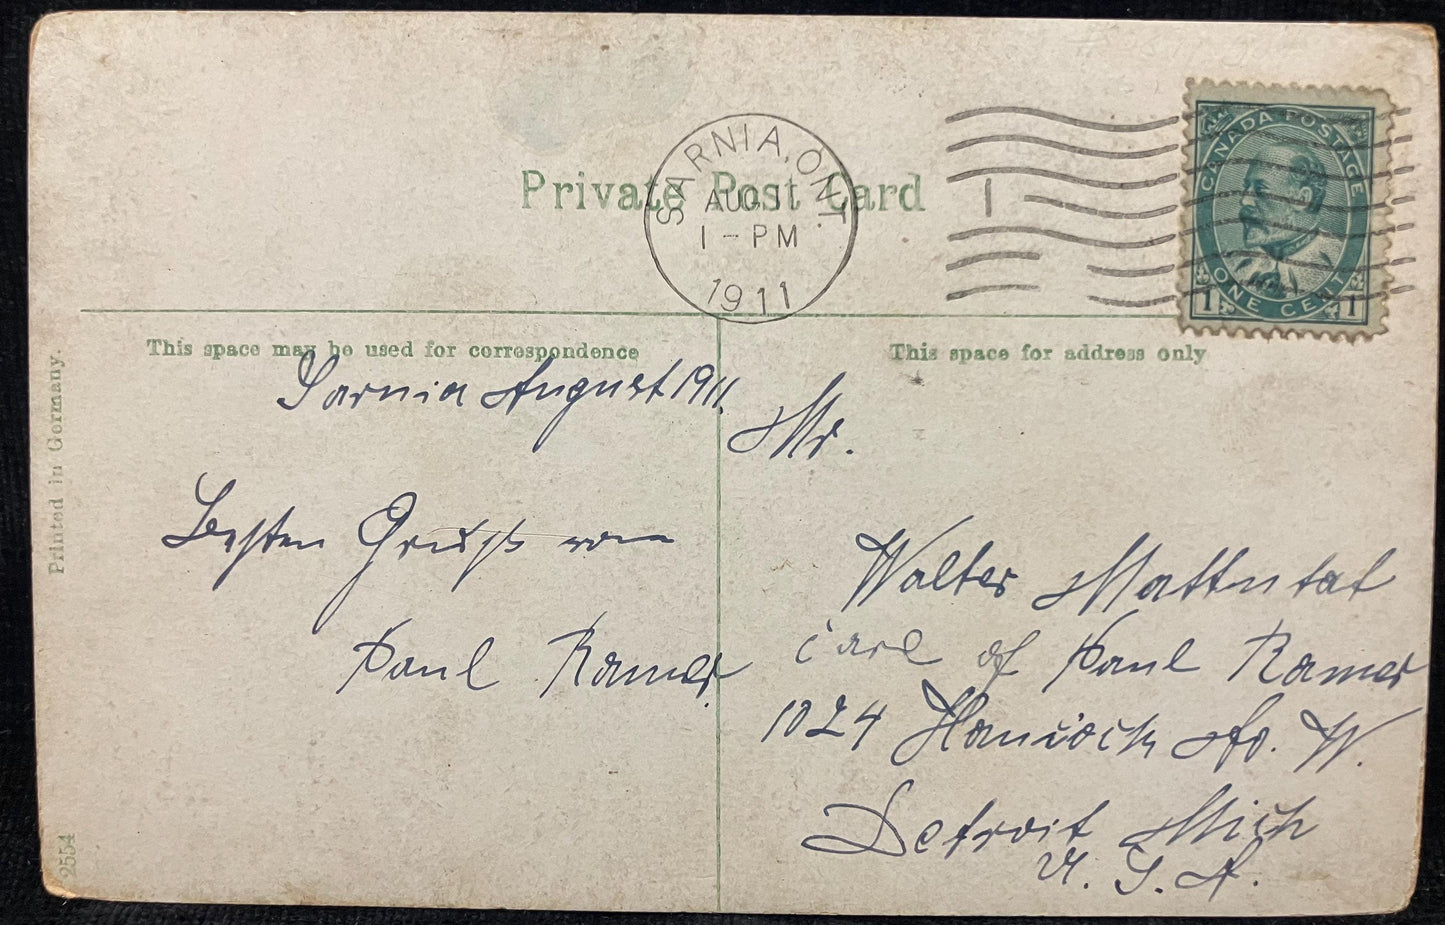 Private Post Card
SARNIA, ONT.
AUG 1
1 - PM
1911
1
CANADA POSTAGE
ONE CENT
1 1
This space may be used for correspondence
This space for address only
Printed in Germany.
2554
Sarnia August 1911.
Besten Gruß von
Paul Ramer.
Mr.
Walter Mattutat
care of Paul Ramer
1024 Hancock St. W.
Detroit Mich
U. S. A.